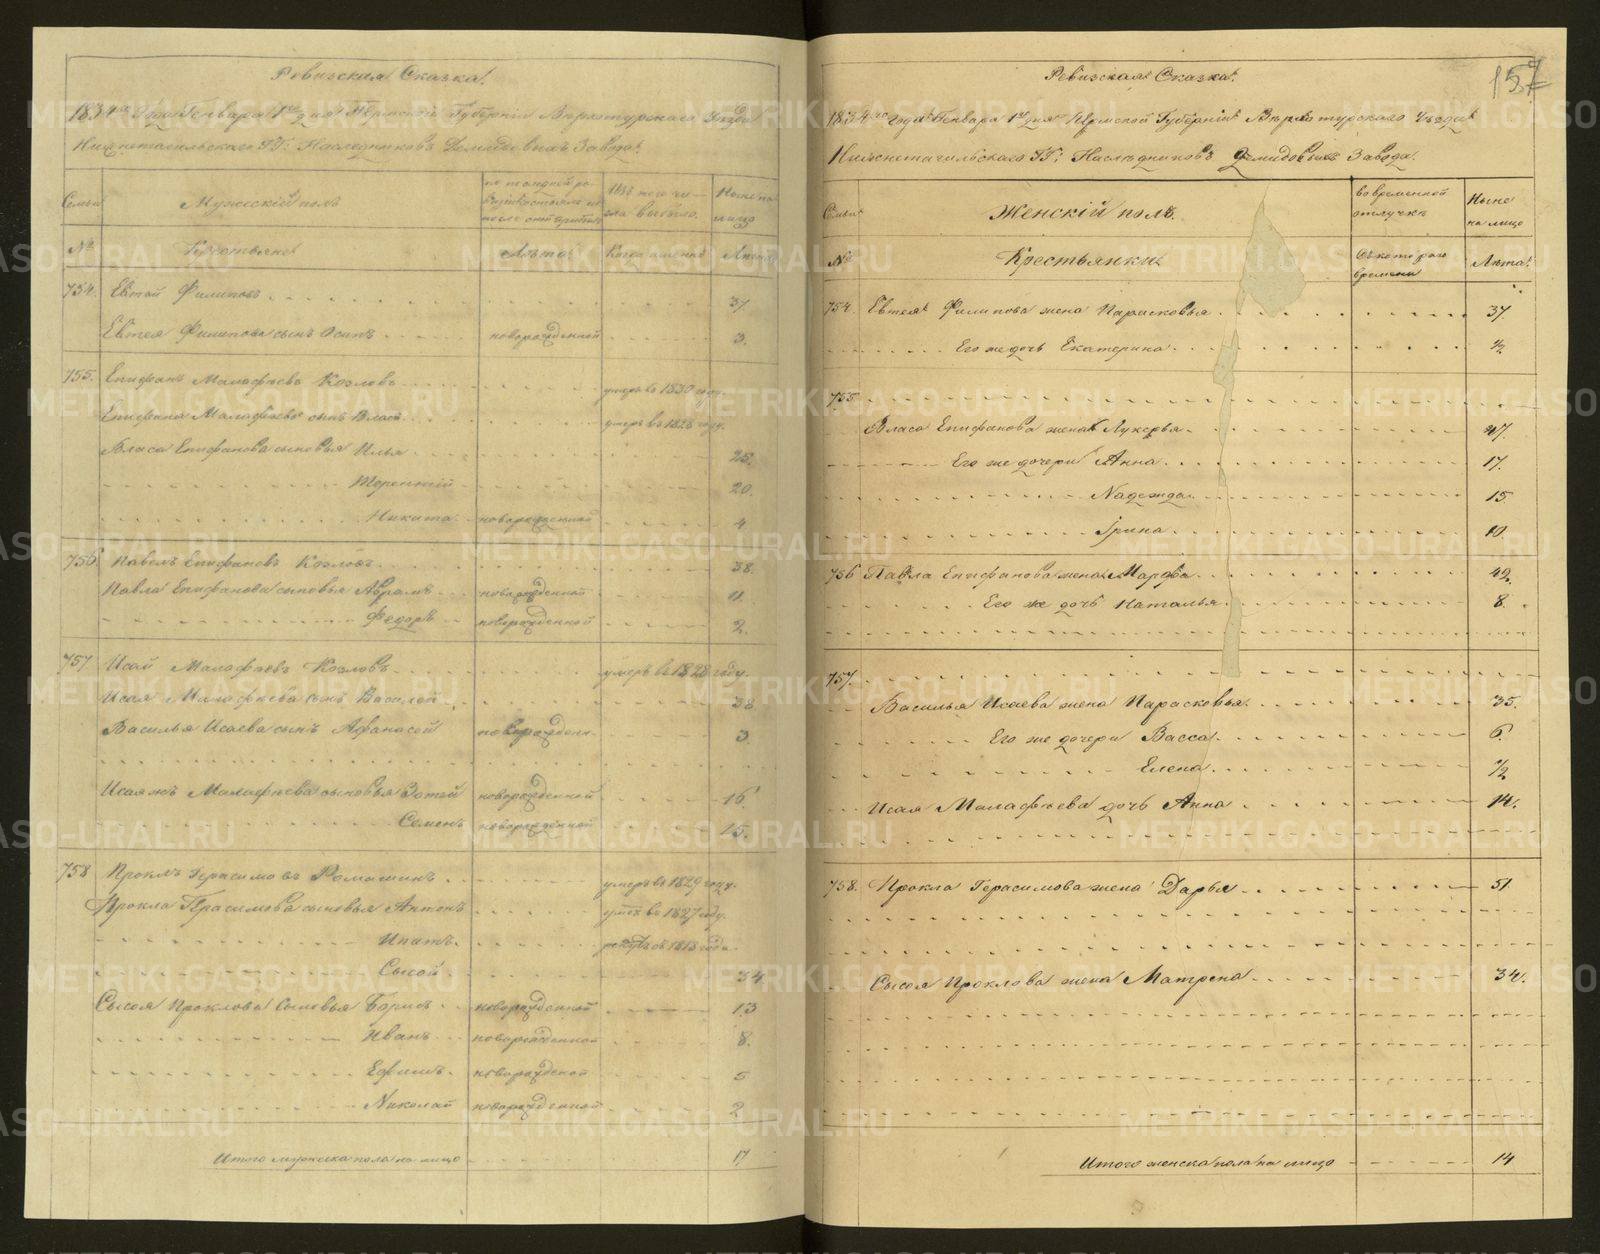 Ревизская Сказка.
1834го Года Генваря 1го дня Пермской Губерніи Верхотурскаго Уезда
Нижнетагильскаго ГГ: Наследниковъ Демидовыхъ Завода.
Семьи
Мужескій полъ
по последней ревизіи состояло и после оной прибыло
Изъ того числа выбыло
Ныне на лицо
№
Крестьяне
Лѣта
Когда именно
Лета
754. Евтей Филиповъ 37
Евтея Филипова сынъ Осипъ новорожденной 3.
755. Епифанъ Малафеевъ Козловъ умеръ въ 1830 году.
Епифана Малафеева сынъ Власъ умеръ въ 1828 году.
Власа Епифанова сыновья Илья 25.
Терентій 20.
Никита новорожденной 4
756. Павелъ Епифановъ Козловъ 38.
Павла Епифанова сыновья Абрамъ новорожденной 11
Федоръ новорожденной 2.
757. Исай Малафеевъ Козловъ умеръ въ 1828 году.
Исая Малафеева сынъ Василей 38
Василья Исаева сынъ Афанасей новорожден. 3.
Исая жъ Малафеева сыновья Зотей новорожденной 16.
Семенъ новорожденной 15.
758 Проклъ Герасимовъ Ромашинъ умеръ въ 1829 году.
Прокла Герасимова сыновья Антонъ умеръ въ 1827 году.
Ипатъ. рекрутъ съ 1813 года.
Сысой 34
Сысоя Проклова Сыновья Борисъ новорожденной 13
Иванъ новорожденной 8.
Ефимъ. новорожденной 5
Николай новорожденной 2
Итого мужеска пола на лицо 17
157
Ревизская Сказка.
1834го года Генваря 1го дня Пермской Губерніи Верхотурскаго Уезда
Нижнетагильскаго ГГ: Наследниковъ Демидовыхъ Завода.
Семьи
Женскій полъ.
во временной отлучке
Ныне на лицо
№
Крестьянки
Съ которого времени
Лета.
754. Евтея Филипова жена Парасковья 37.
Его же дочь Екатерина ½
755.
Власа Епифанова жена Лукерья 47.
Его же дочери Анна 17.
Надежда 15
Ірина 10
756 Павла Епифанова жена Марфа 42.
Его же дочь Наталья 8.
757.
Василья Исаева жена Парасковья 35.
Его же дочери Васса 6.
Елена ½
Исая Малафеева дочь Анна 14.
758. Прокла Герасимова жена Дарья 51.
Сысоя Проклова жена Матрена 34.
Итого женска пола на лицо 14
METRIKI.GASO-URAL.RU